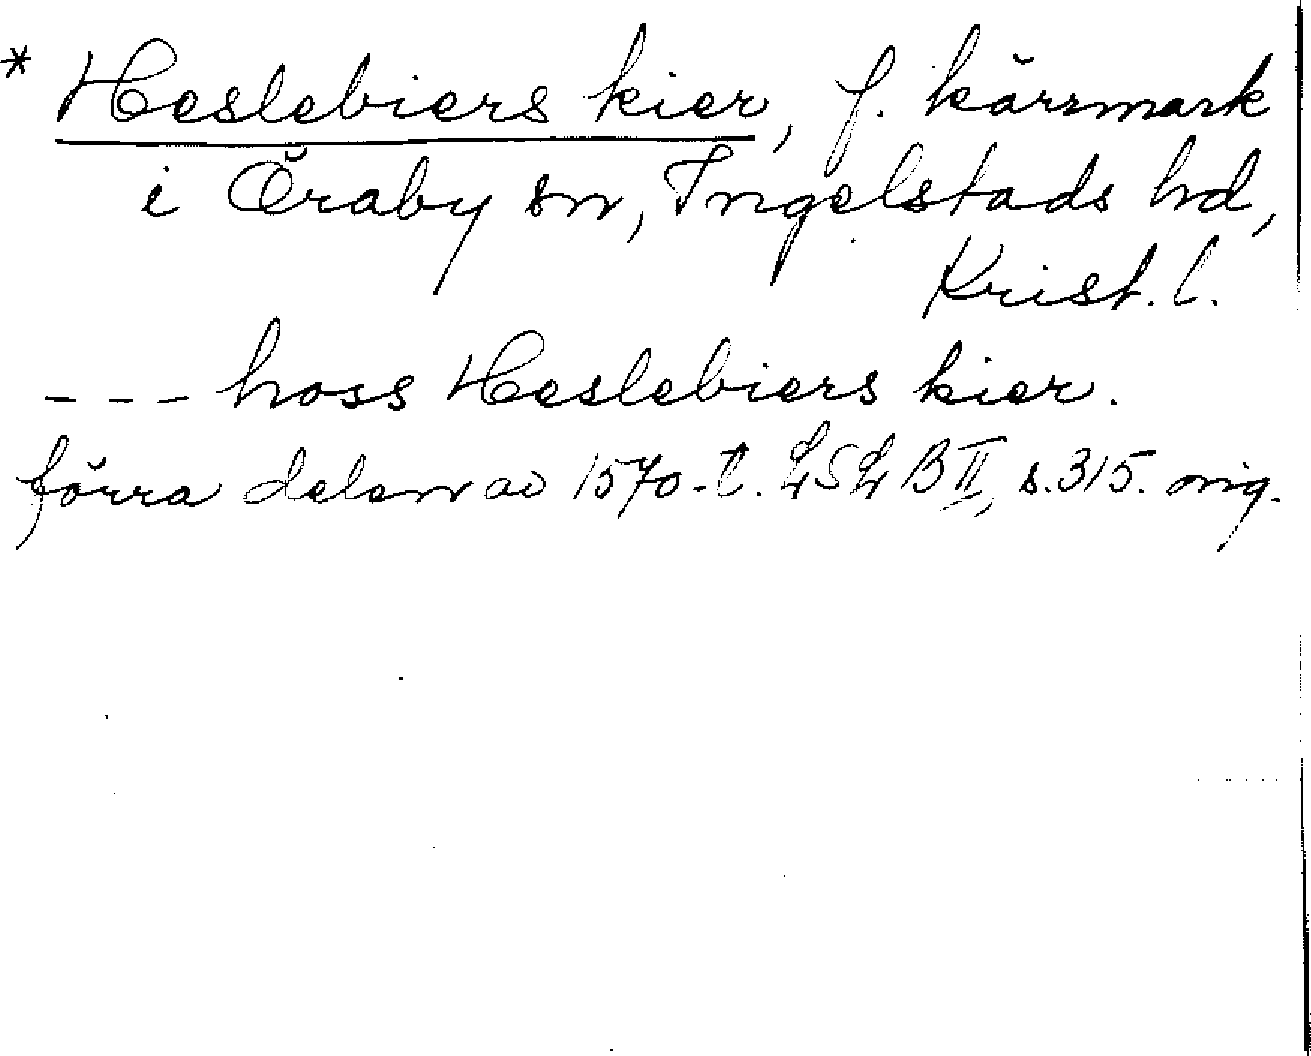 * Heslebiers kier, f. kärrmark
i Öraby sn, Ingelstads hd,
Krist. l.
--- hoss Heslebiers kier.
förra delen av 1570-t. LSL B II, s. 315. orig.